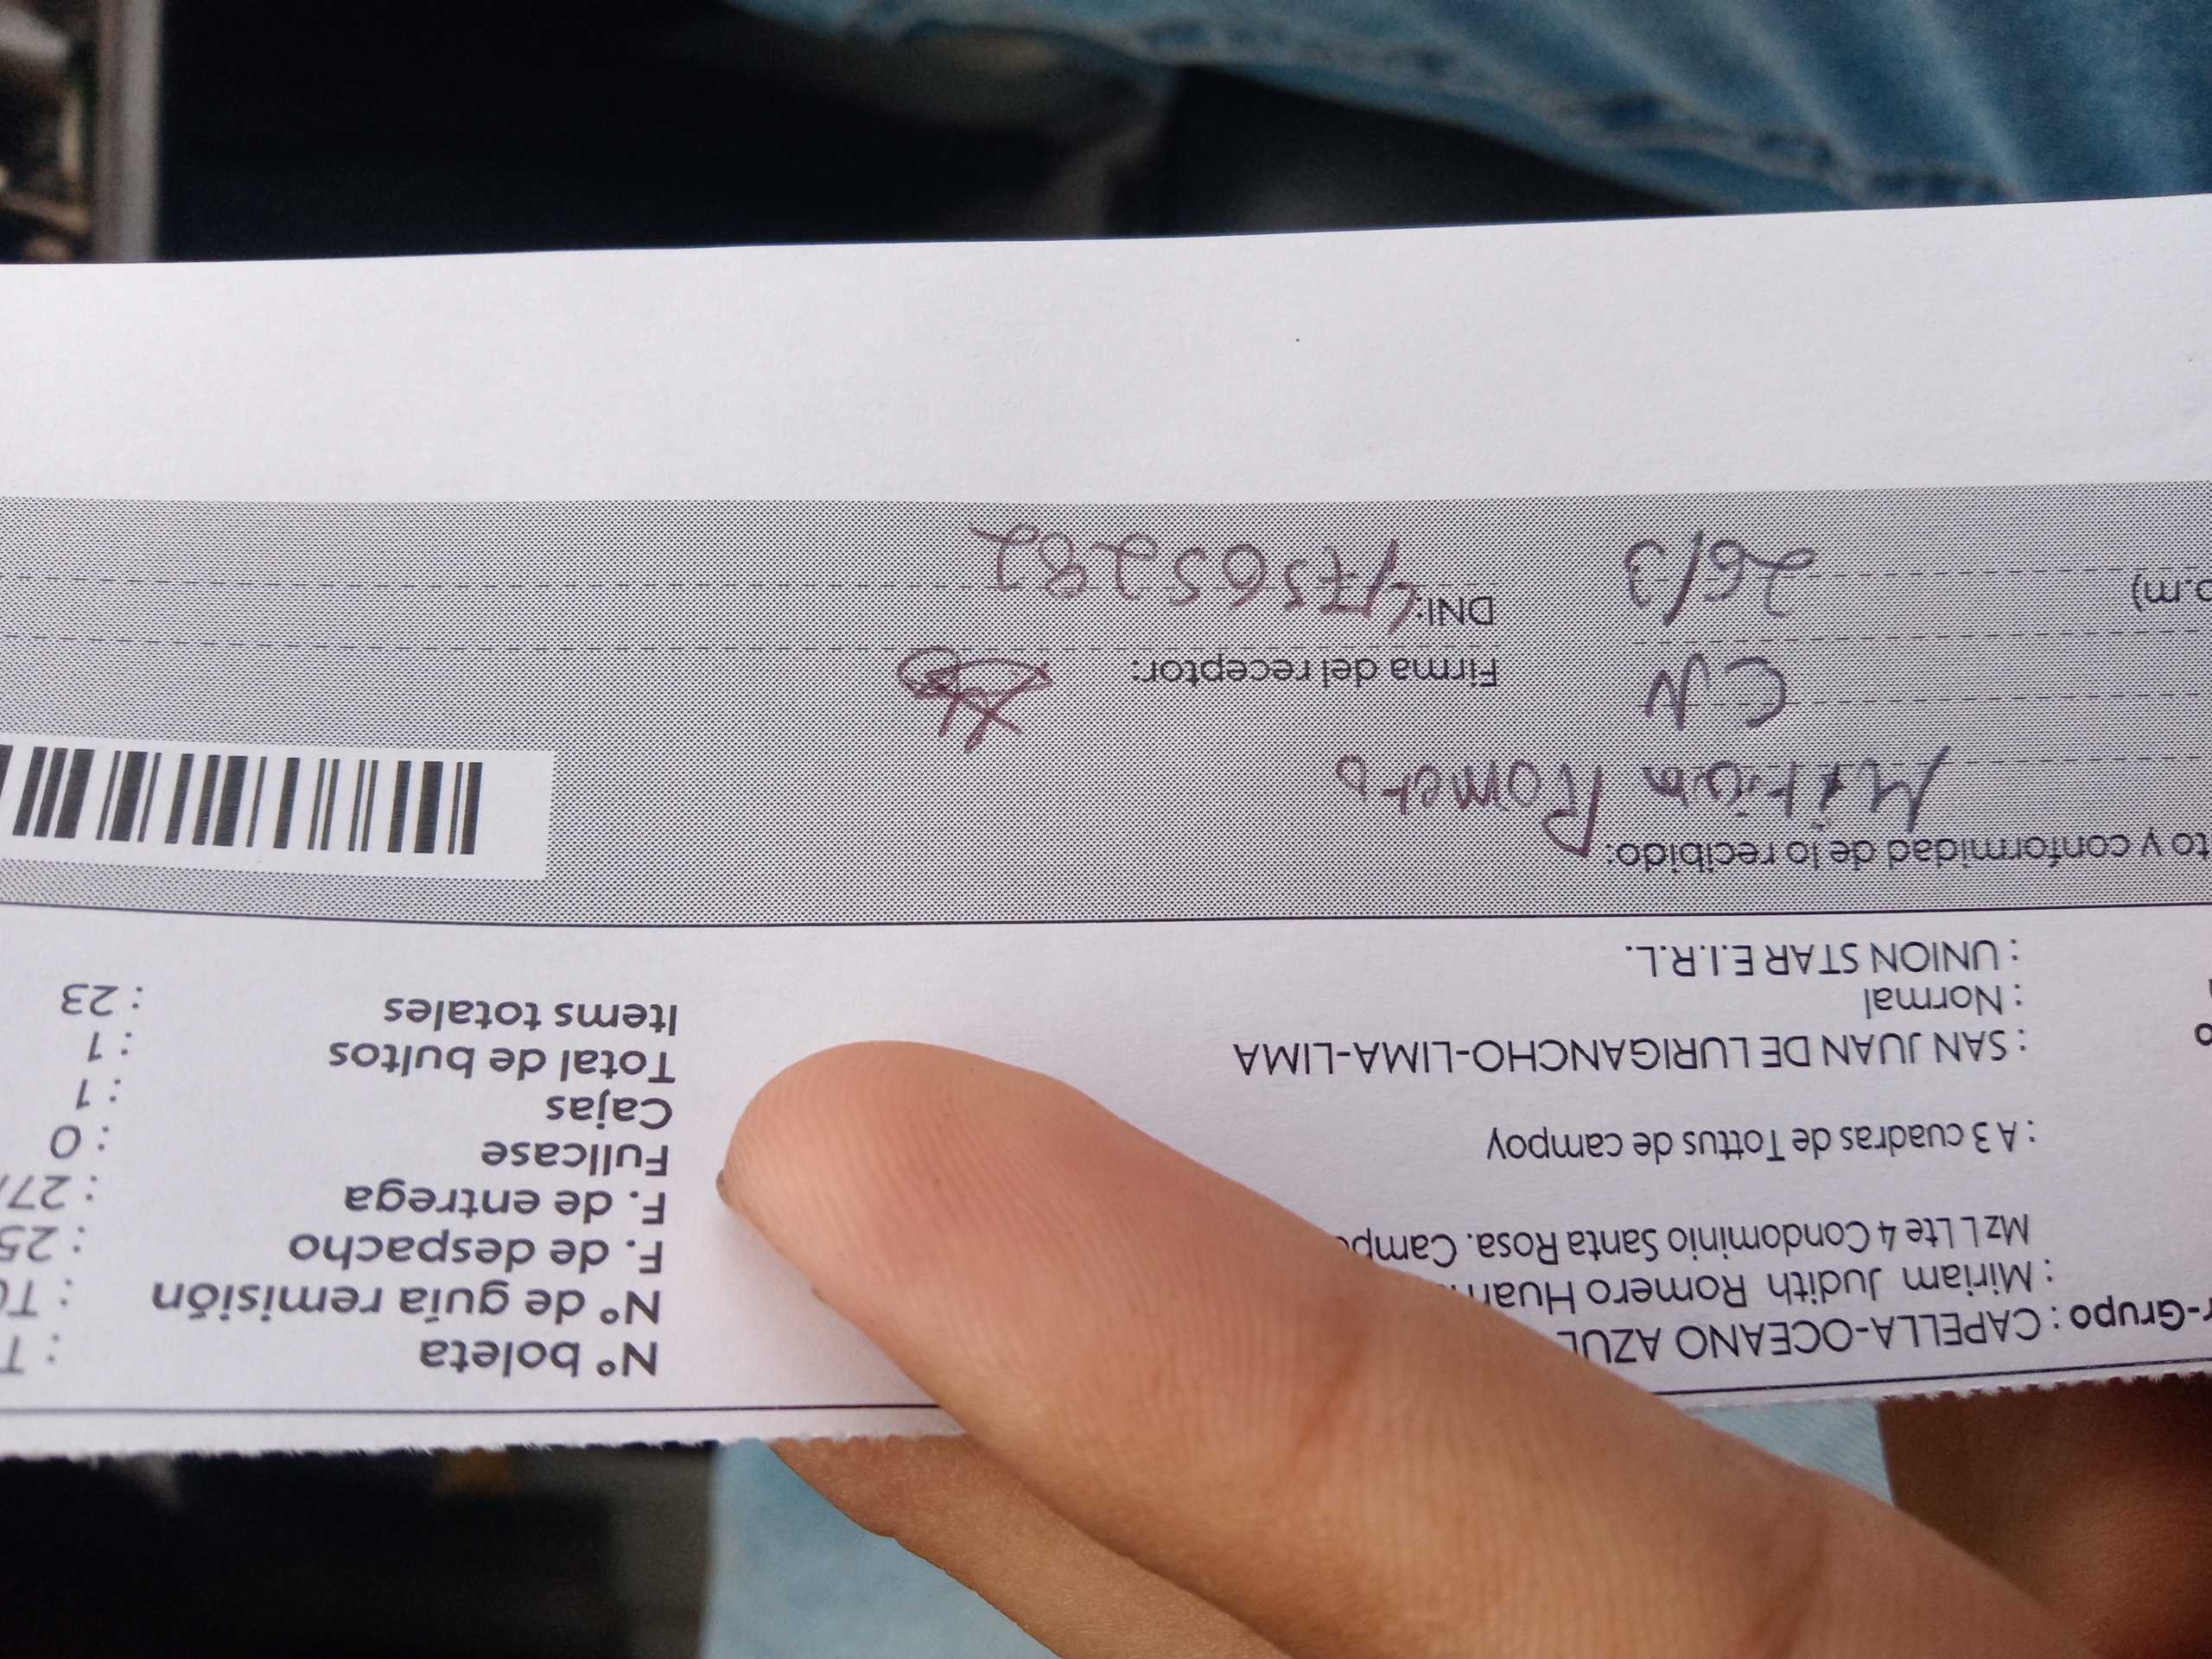 r-Grupo : CAPELLA-OCEANO AZUL
: Miriam Judith Romero
Mz L Lte 4 Condominio Santa Rosa.
: A 3 cuadras de Tottus de campoy
: SAN JUAN DE LURIGANCHO-LIMA-LIMA
: Normal
: UNION STAR E.I.R.L.
N° boleta : T
N° de guía remisión : T0
F. de despacho : 25
F. de entrega : 27/
Fullcase : 0
Cajas : 1
Total de bultos : 1
Items totales : 23
to y conformidad de lo recibido:
Miriam Romero
CN
Firma del receptor:
p.m) 26/3
DNI: 47565282